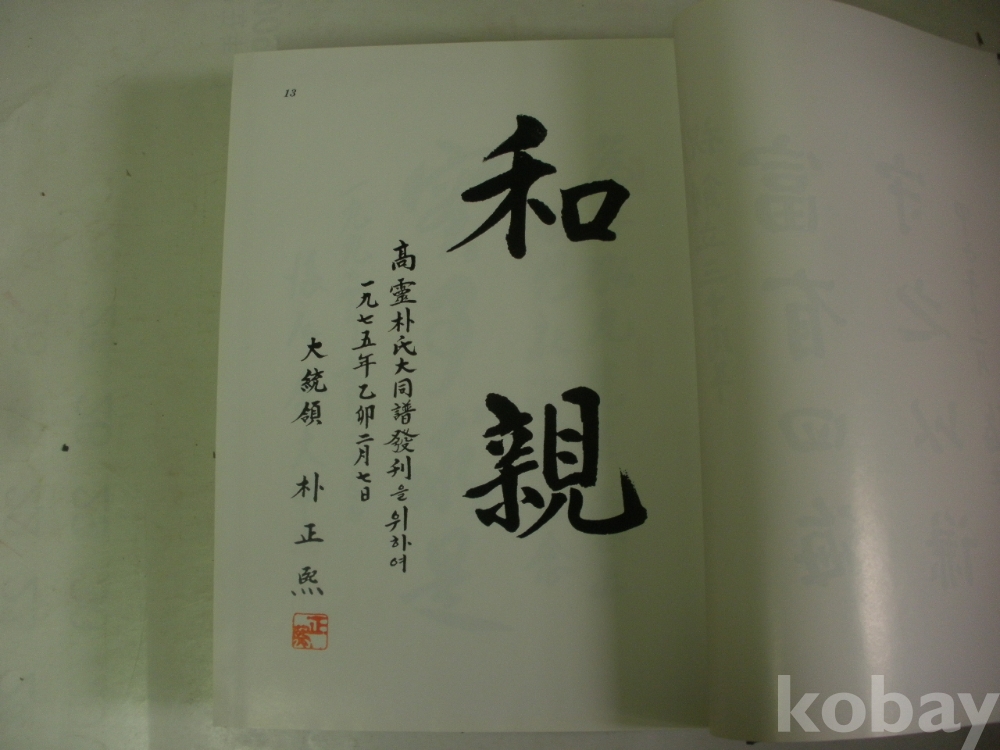 13
和親
高靈朴氏大同譜發刊을 위하여
一九七五年乙卯二月七日
大統領 朴正熙
正熙
kobay